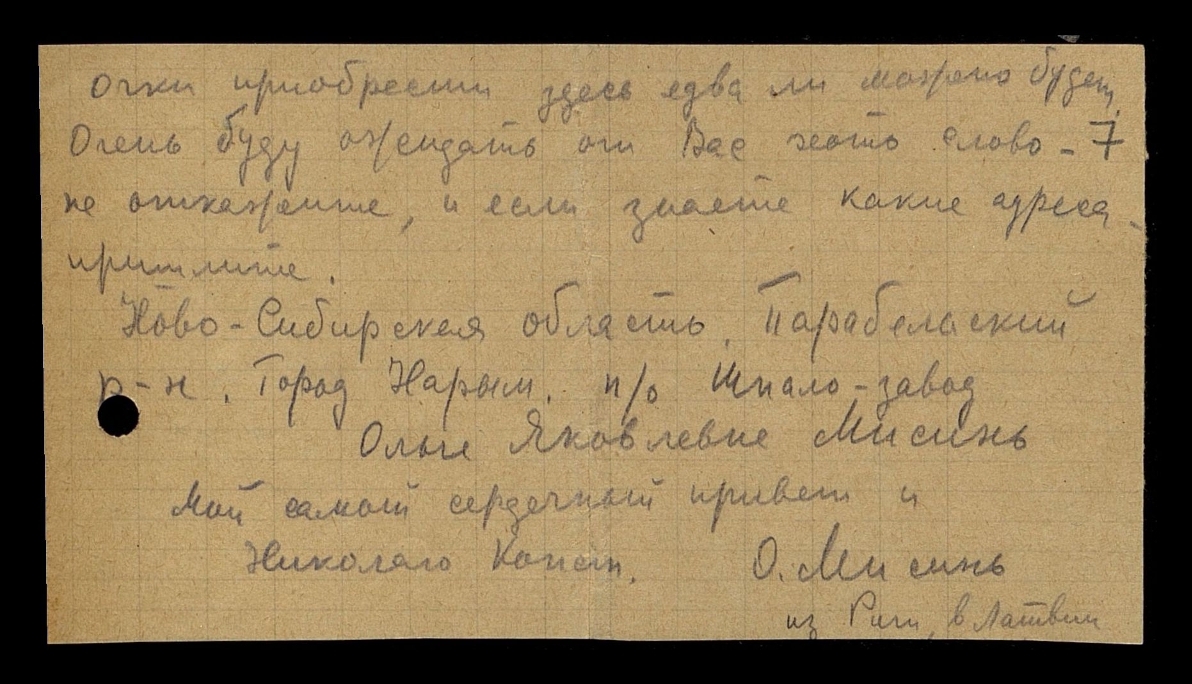 очки приобрести здесь едва ли можно будет.
Очень буду ожидать от Вас хоть слово - 7
не откажите, и если знаете какие адреса -
пришлите.
Ново-Сибирская область. Парабельский
р-н. Город Нарым. п/о Шпало-завод
Ольге Яковлевне Мисинь
Мой самый сердечный привет и
Николаю Конст.    О. Мисинь
из Риги, в Латвии